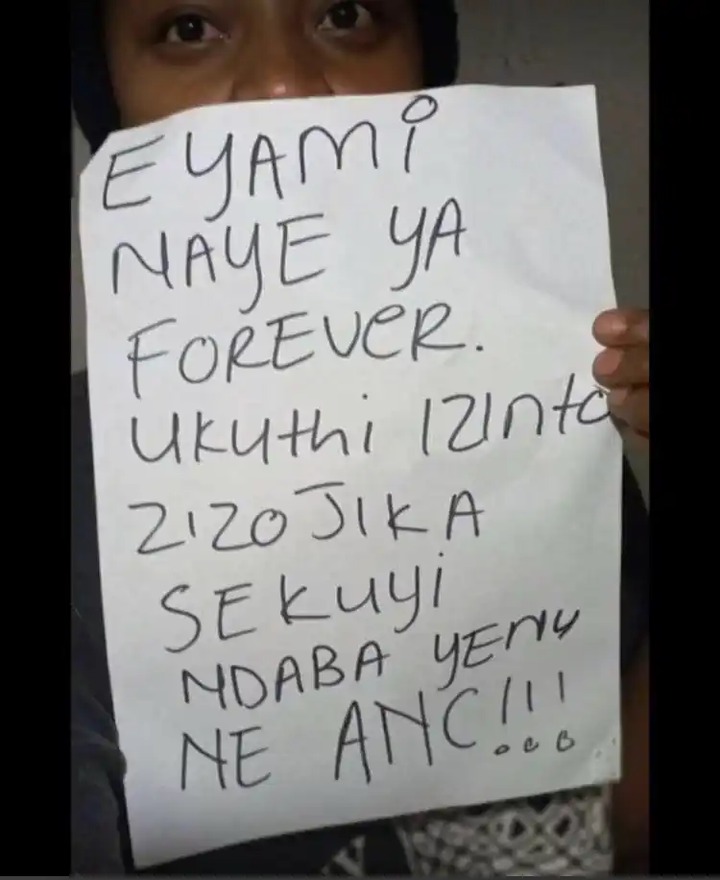 EYAMi
NAYE YA
FOREVER.
UKUthi IZInto
ZIZOJIKA
SEKUYI
NDABA YENU
NE ANC!!!